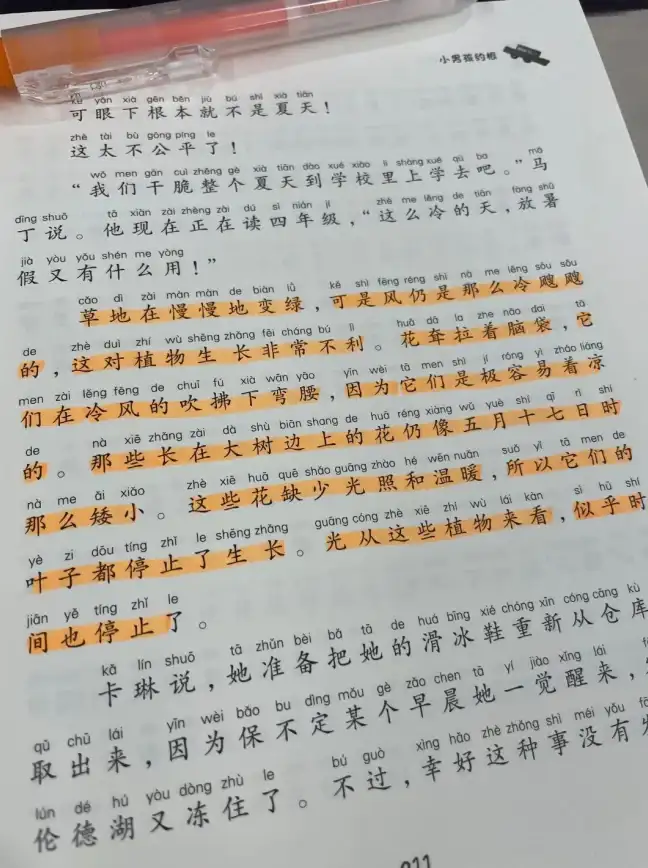 小男孩约根
kě yǎn xià gēn běn jiù bú shì xià tiān
可眼下根本就不是夏天！
zhè tài bù gōng píng le
这太不公平了！
wǒ men gān cuì zhěng gè xià tiān dào xué xiào lǐ shàng xué qù ba mǎ
“我们干脆整个夏天到学校里上学去吧。”马
dīng shuō tā xiàn zài zhèng zài dú sì nián jí zhè me lěng de tiān fàng shǔ
丁说。他现在正在读四年级，“这么冷的天，放暑
jià yòu yǒu shén me yòng
假又有什么用！”
cǎo dì zài màn màn de biàn lǜ kě shì fēng réng shì nà me lěng sōu sōu
草地在慢慢地变绿，可是风仍是那么冷飕飕
de zhè duì zhí wù shēng zhǎng fēi cháng bú lì huā dā la zhe nǎo dai tā
的，这对植物生长非常不利。花耷拉着脑袋，它
men zài lěng fēng de chuī fú xià wān yāo yīn wèi tā men shì jí róng yì zháo liáng
们在冷风的吹拂下弯腰，因为它们是极容易着凉
de nà xiē zhǎng zài dà shù biān shang de huā réng xiàng wǔ yuè shí qī rì shí
的。那些长在大树边上的花仍像五月十七日时
nà me ǎi xiǎo zhè xiē huā quē shǎo guāng zhào hé wēn nuǎn suǒ yǐ tā men de
那么矮小。这些花缺少光照和温暖，所以它们的
yè zi dōu tíng zhǐ le shēng zhǎng guāng cóng zhè xiē zhí wù lái kàn sì hū shí
叶子都停止了生长。光从这些植物来看，似乎时
jiān yě tíng zhǐ le
间也停止了。
kǎ lín shuō tā zhǔn bèi bǎ tā de huá bīng xié chóng xīn cóng cāng kù
卡琳说，她准备把她的滑冰鞋重新从仓库
qǔ chū lái yīn wèi bǎo bu dìng mǒu gè zǎo chen tā yí jiào xǐng lái
取出来，因为保不定某个早晨她一觉醒来，
lún dé hú yòu dòng zhù le bú guò xìng hǎo zhè zhǒng shì méi yǒu
伦德湖又冻住了。不过，幸好这种事没有